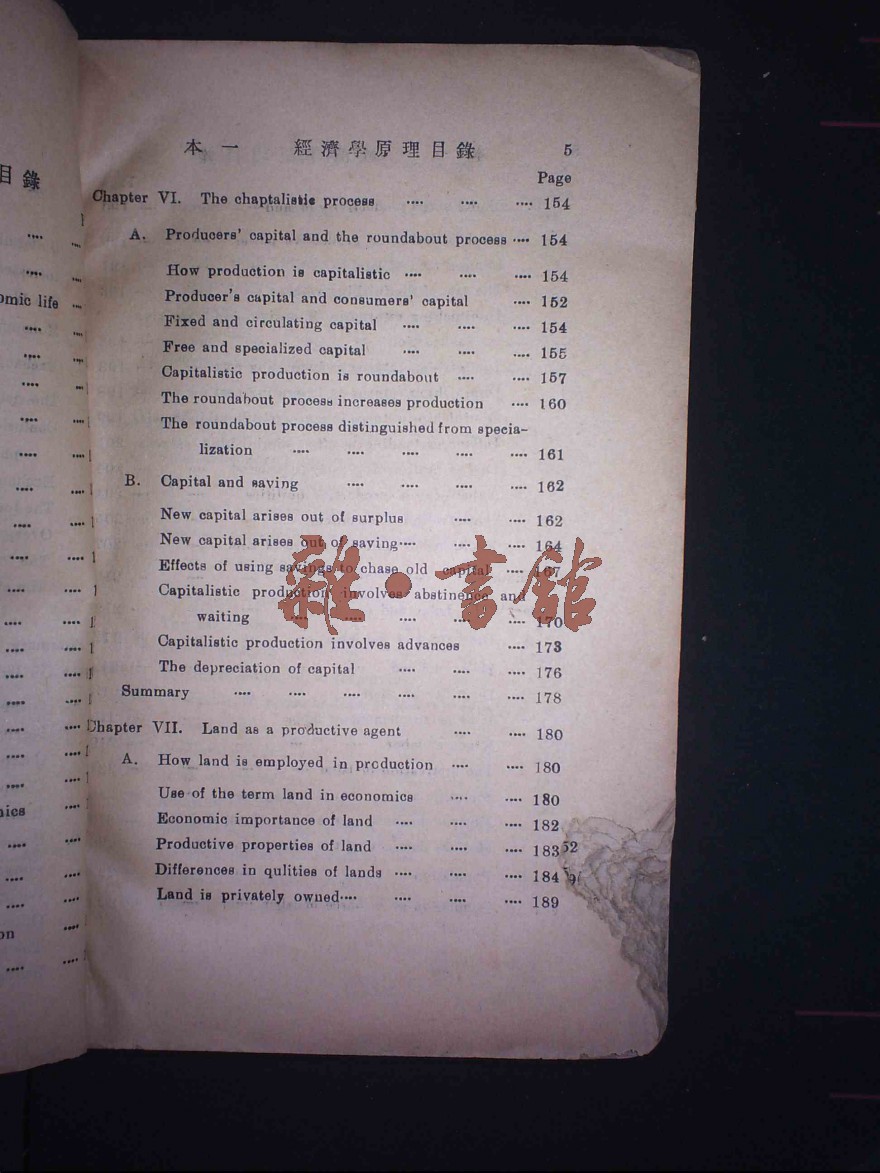 目錄
omic life
nics
on
本一 經濟學原理目錄 5
Page
Chapter VI. The chaptalistic process .... .... .... 154
A. Producers' capital and the roundabout process .... 154
How production is capitalistic .... .... .... 154
Producer's capital and consumers' capital .... 152
Fixed and circulating capital .... .... .... 154
Free and specialized capital .... .... .... 155
Capitalistic production is roundabout .... .... 157
The roundabout process increases production .... 160
The roundabout process distinguished from specia-
lization .... .... .... .... .... 161
B. Capital and saving .... .... .... .... 162
New capital arises out of surplus .... .... 162
New capital arises out of saving.... .... .... 164
Effects of using savings to chase old capital .... 167
Capitalistic production involves abstinence and
waiting .... .... .... .... .... 170
Capitalistic production involves advances .... 173
The depreciation of capital .... .... .... 176
Summary .... .... .... .... .... .... 178
Chapter VII. Land as a productive agent .... .... 180
A. How land is employed in prcduction .... .... 180
Use of the term land in economics .... .... 180
Economic importance of land .... .... .... 182
Productive properties of land .... .... .... 183
52
Differences in qulities of lands .... .... .... 184
Land is privately owned.... .... .... .... 189
雜·書館